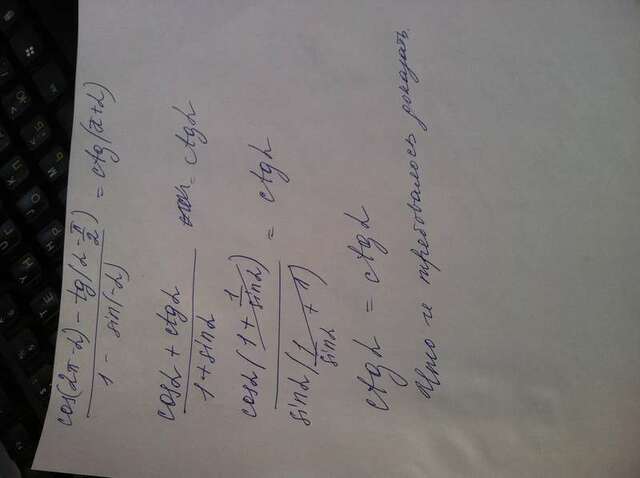 cos(2π-α) - tg(α-π/2) / 1 - sin(-α) = ctg(π+α)
cosα + ctgα / 1 + sinα = ctgα
cosα(1 + 1/sinα) / sinα(1/sinα + 1) = ctgα
ctgα = ctgα
Что и требовалось доказать.